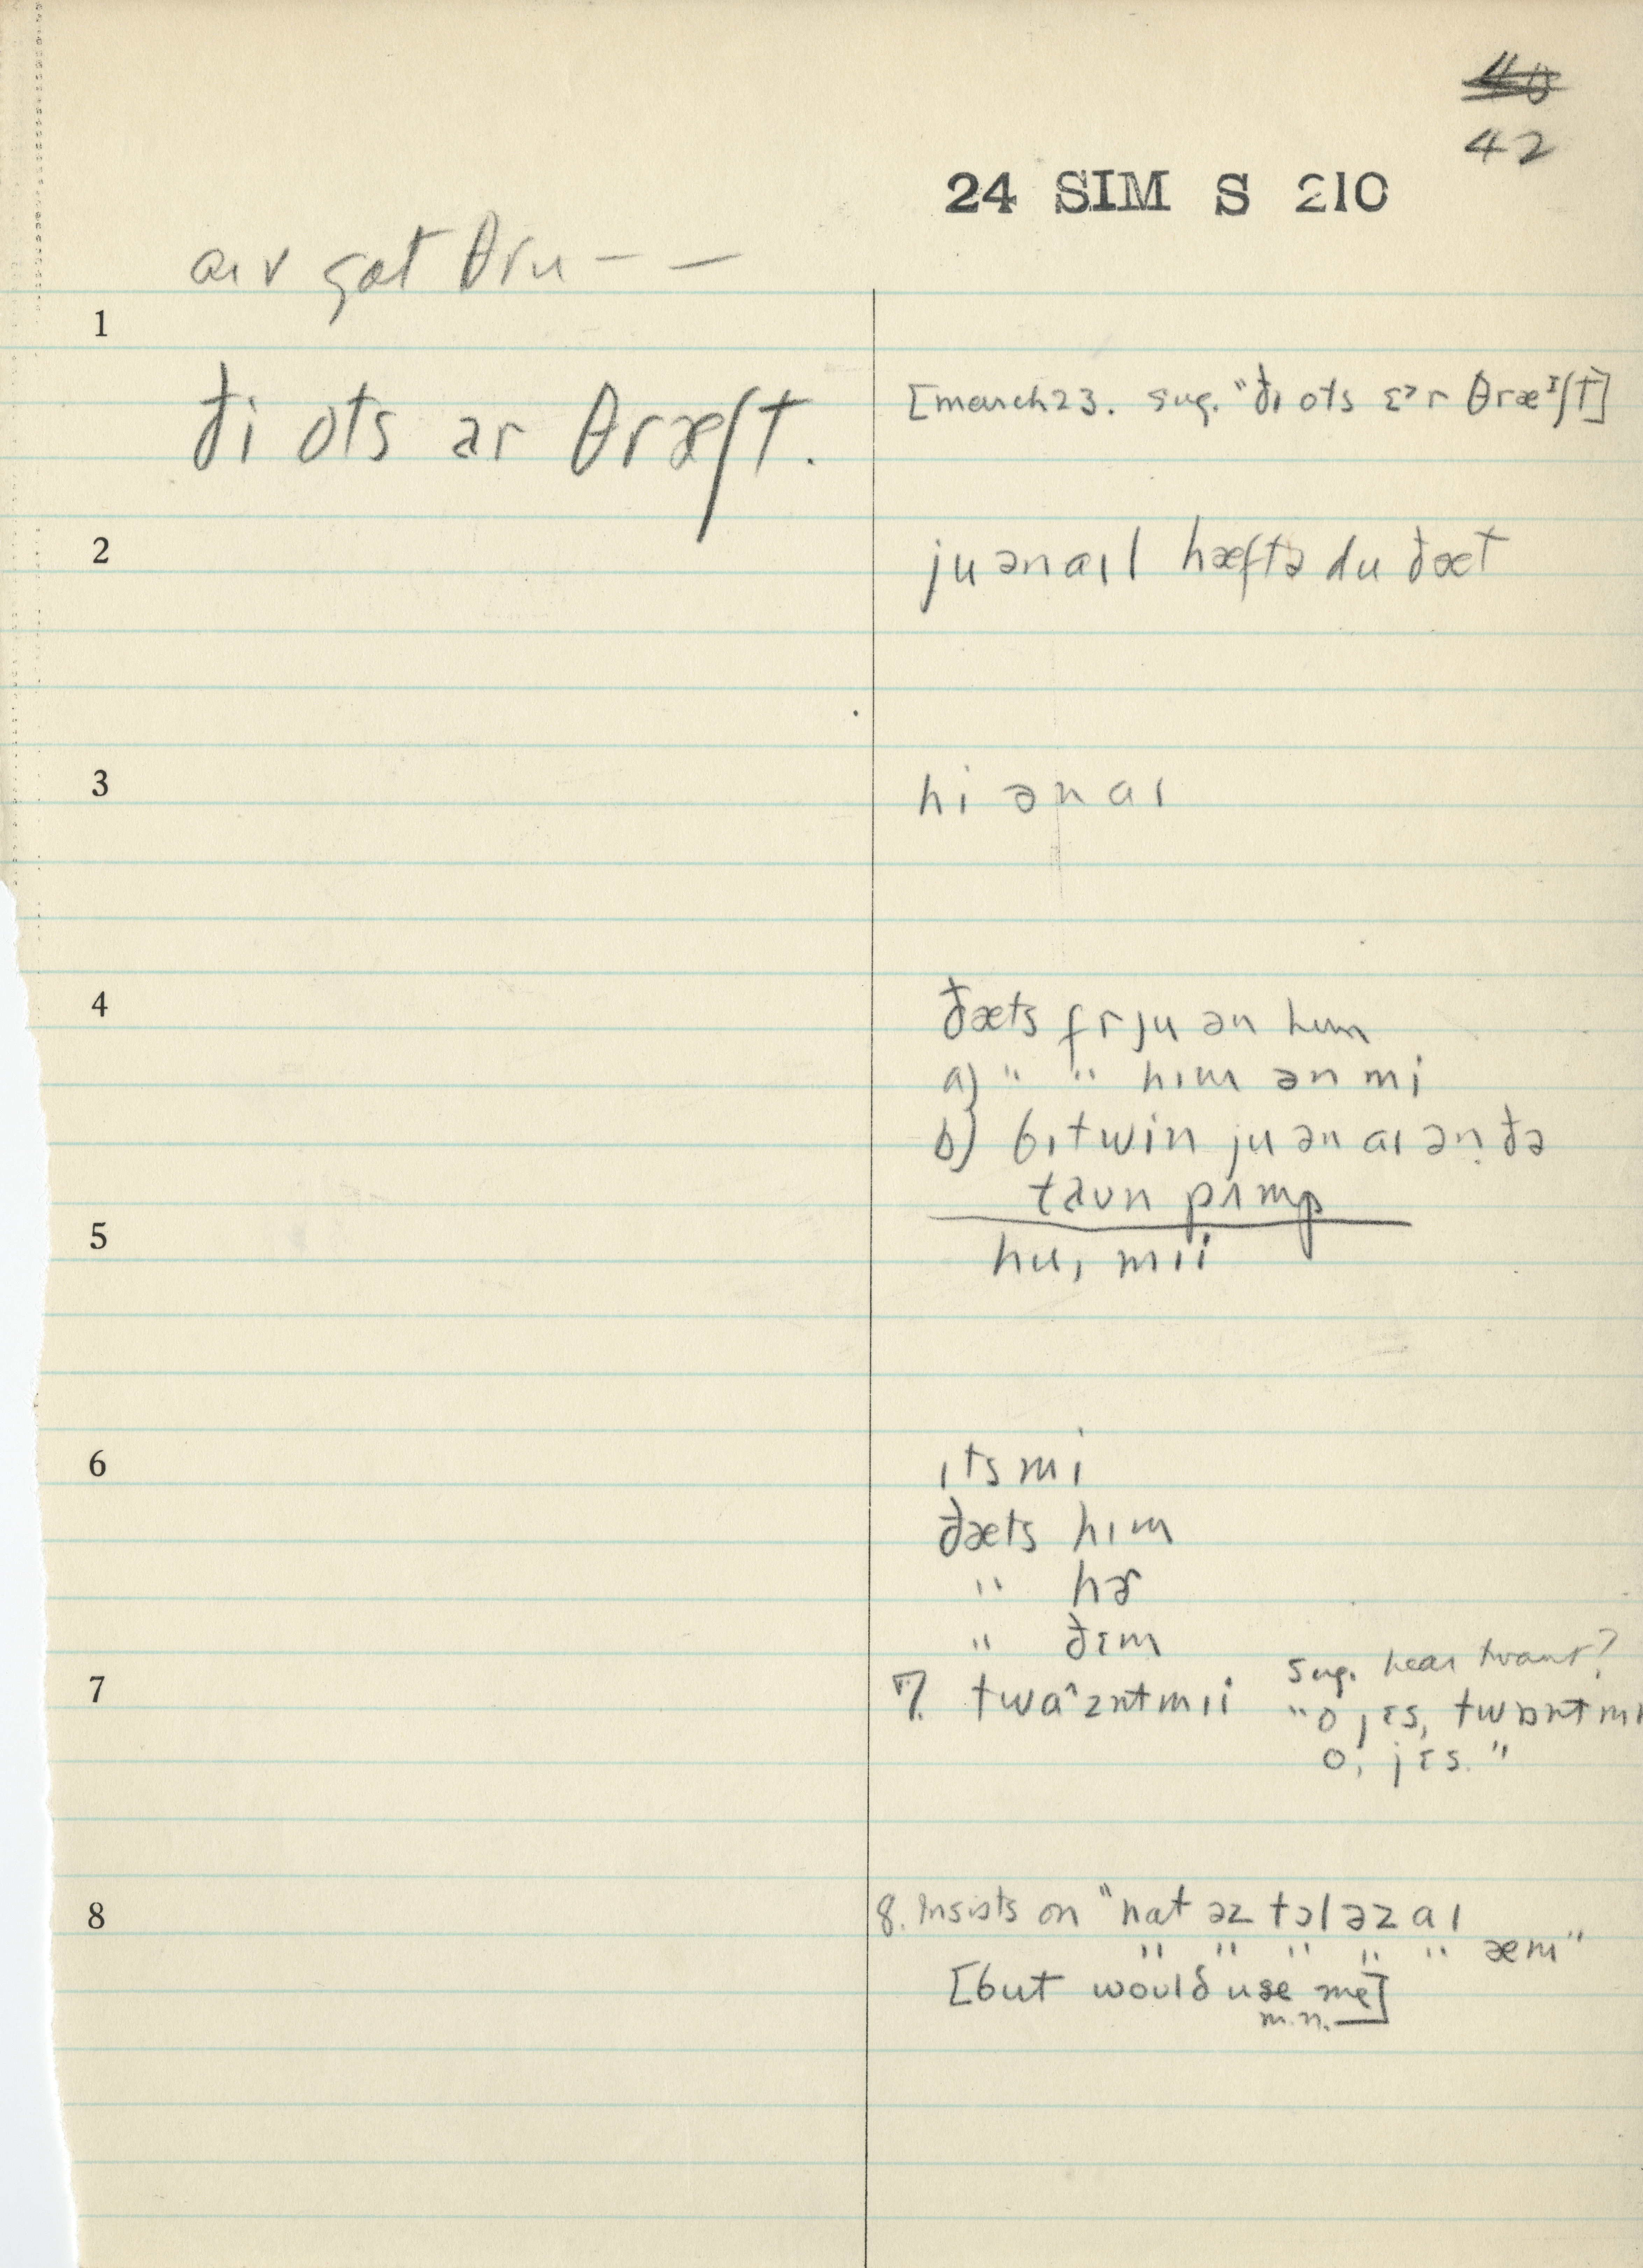 42
24 SIM S 210
aɪv gat θru – –
1
ði ots ar θræʃt.
[march 23. sug. "ðɪ ots ɛᵊr θræᶦʃt]
2
ju ən aɪl hæftə du ðæt
3
hi ən aɪ
4
ðæts fr ju ən hɪm
a) " " hɪm ən mi
b) bɪtwin ju ən aɪ ən ðə
taun pʌmp
5
hu, mɪi
6
ɪts mi
ðæts hɪm
" hɚ
" ðɛm
7
7. twaˆznt mɪi
sug. hear twant?
"o jɛs, twɒnt mɪ
o, jɛs."
8
8. Insists on "nat əz tɔl əz aɪ
" " " " " æm"
[but would use me]
m.n.